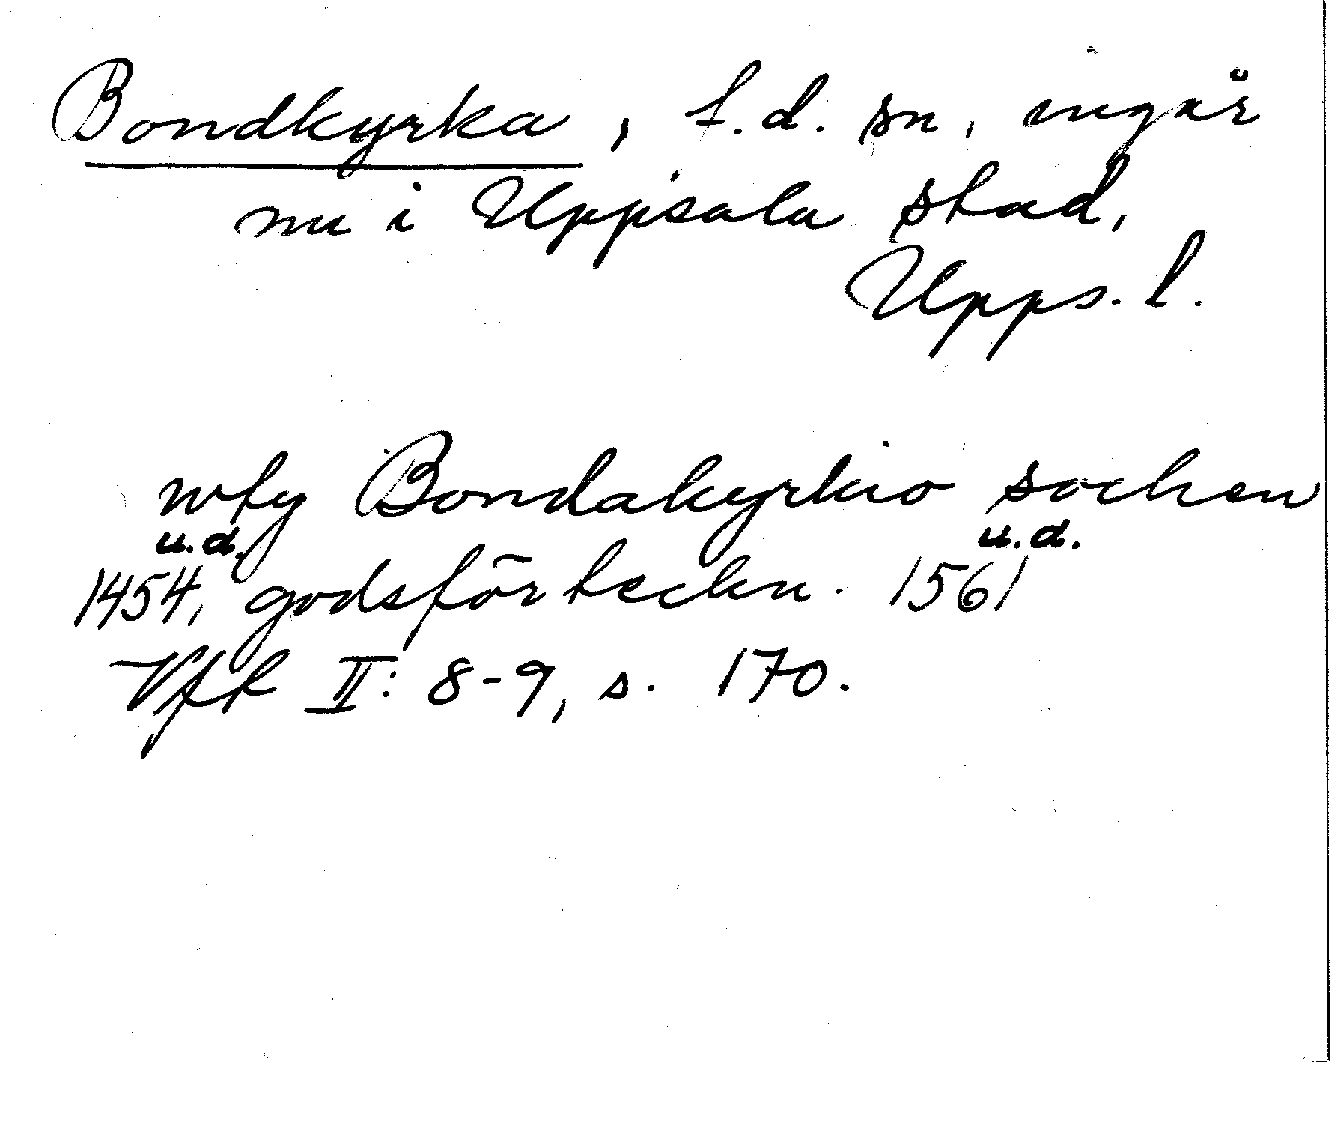 Bondkyrka, f.d. sn, ingår
nu i Uppsala stad,
Upps. l.
wfy Bondakyrkio sochen
u.d. u.d.
1454, godsförteckn. 1561
Vfk II: 8-9, s. 170.